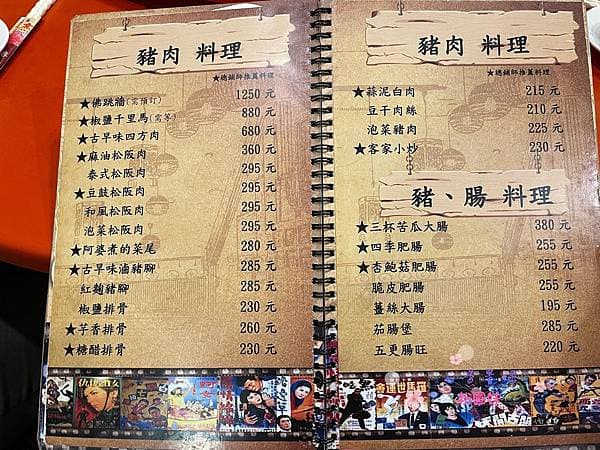 豬肉 料理
★總鋪師推薦料理
★佛跳牆(需預訂) 1250 元
★椒鹽千里馬(需等) 880 元
★古早味四方肉 680 元
★麻油松阪肉 360 元
泰式松阪肉 295 元
★豆鼓松阪肉 295 元
和風松阪肉 295 元
泡菜松阪肉 295 元
★阿婆煮的菜尾 280 元
★古早味滷豬腳 285 元
紅麴豬腳 285 元
椒鹽排骨 230 元
★芋香排骨 260 元
★糖醋排骨 230 元
豬肉 料理
★總鋪師推薦料理
★蒜泥白肉 215 元
豆干肉絲 210 元
泡菜豬肉 225 元
★客家小炒 230 元
豬、腸 料理
★三杯苦瓜大腸 380 元
★四季肥腸 255 元
★杏鮑菇肥腸 255 元
脆皮肥腸 255 元
薑絲大腸 195 元
茄腸堡 285 元
五更腸旺 220 元